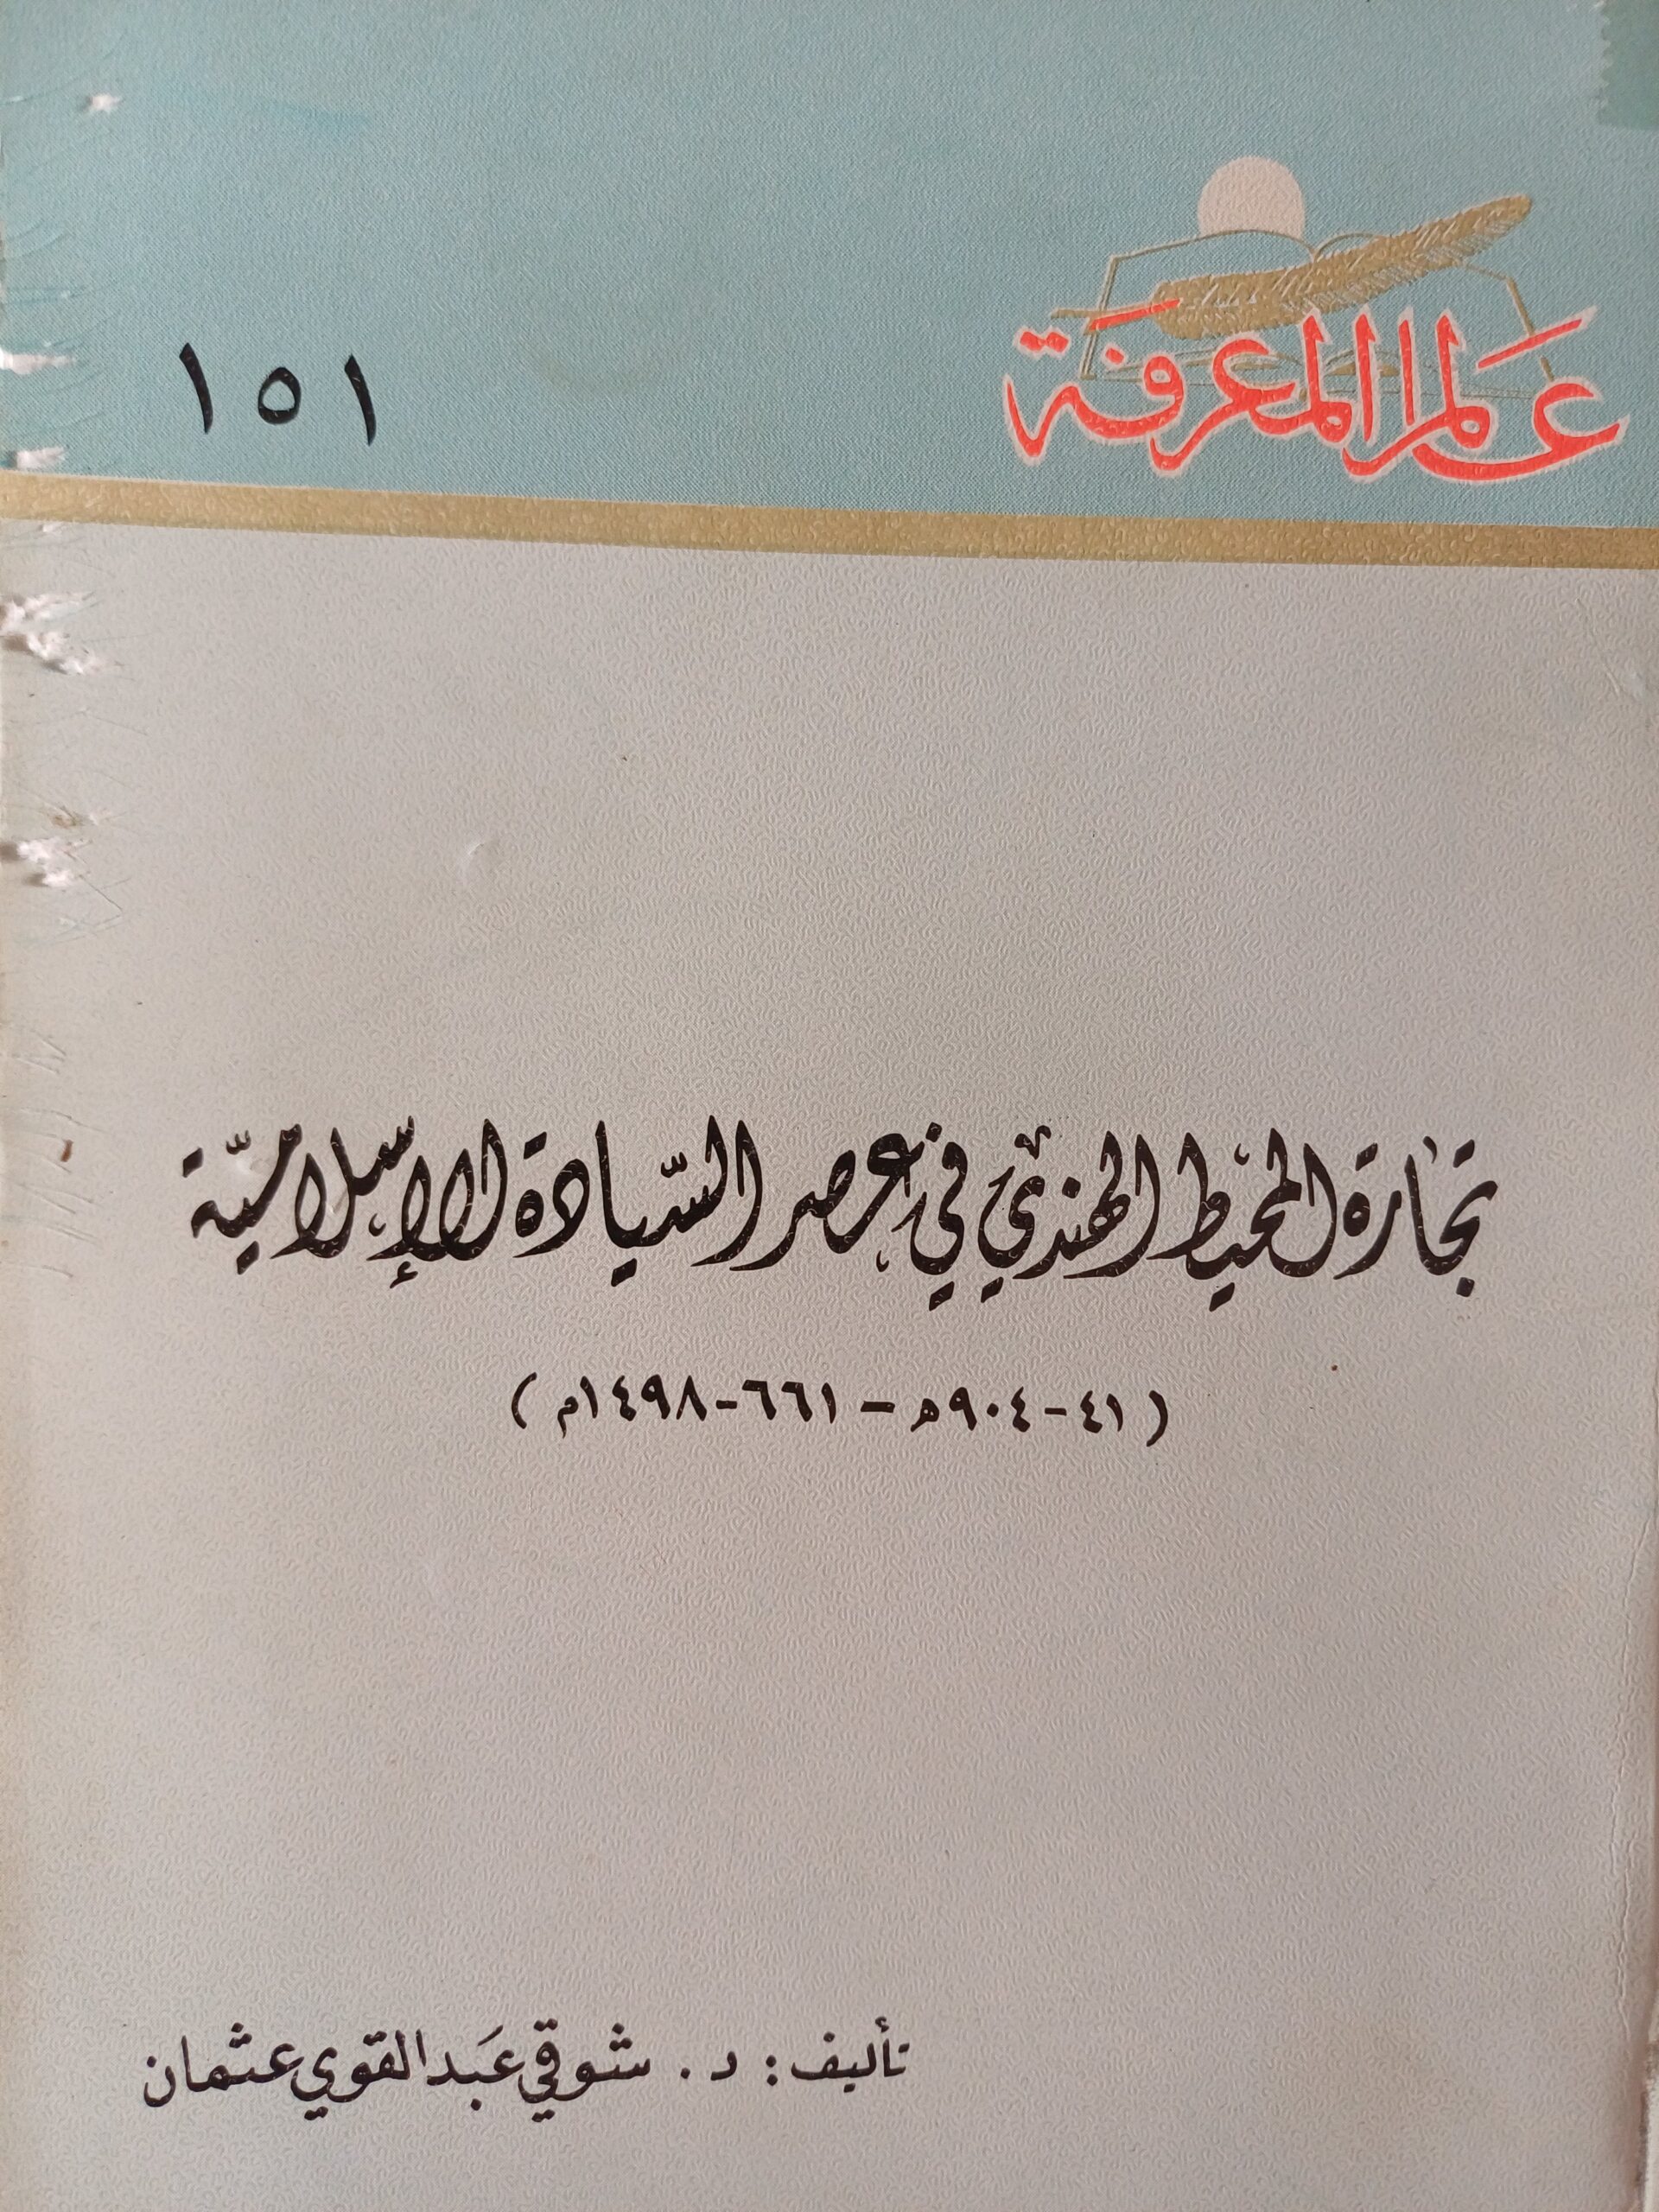 عالم المعرفة
١٥١
تجارة المحيط الهندي في عصر السّيادة الإسلاميّة
( ٤١-٩٠٤هـ - ٦٦١-١٤٩٨م )
تأليف: د. شوقي عَبد القوي عثمان